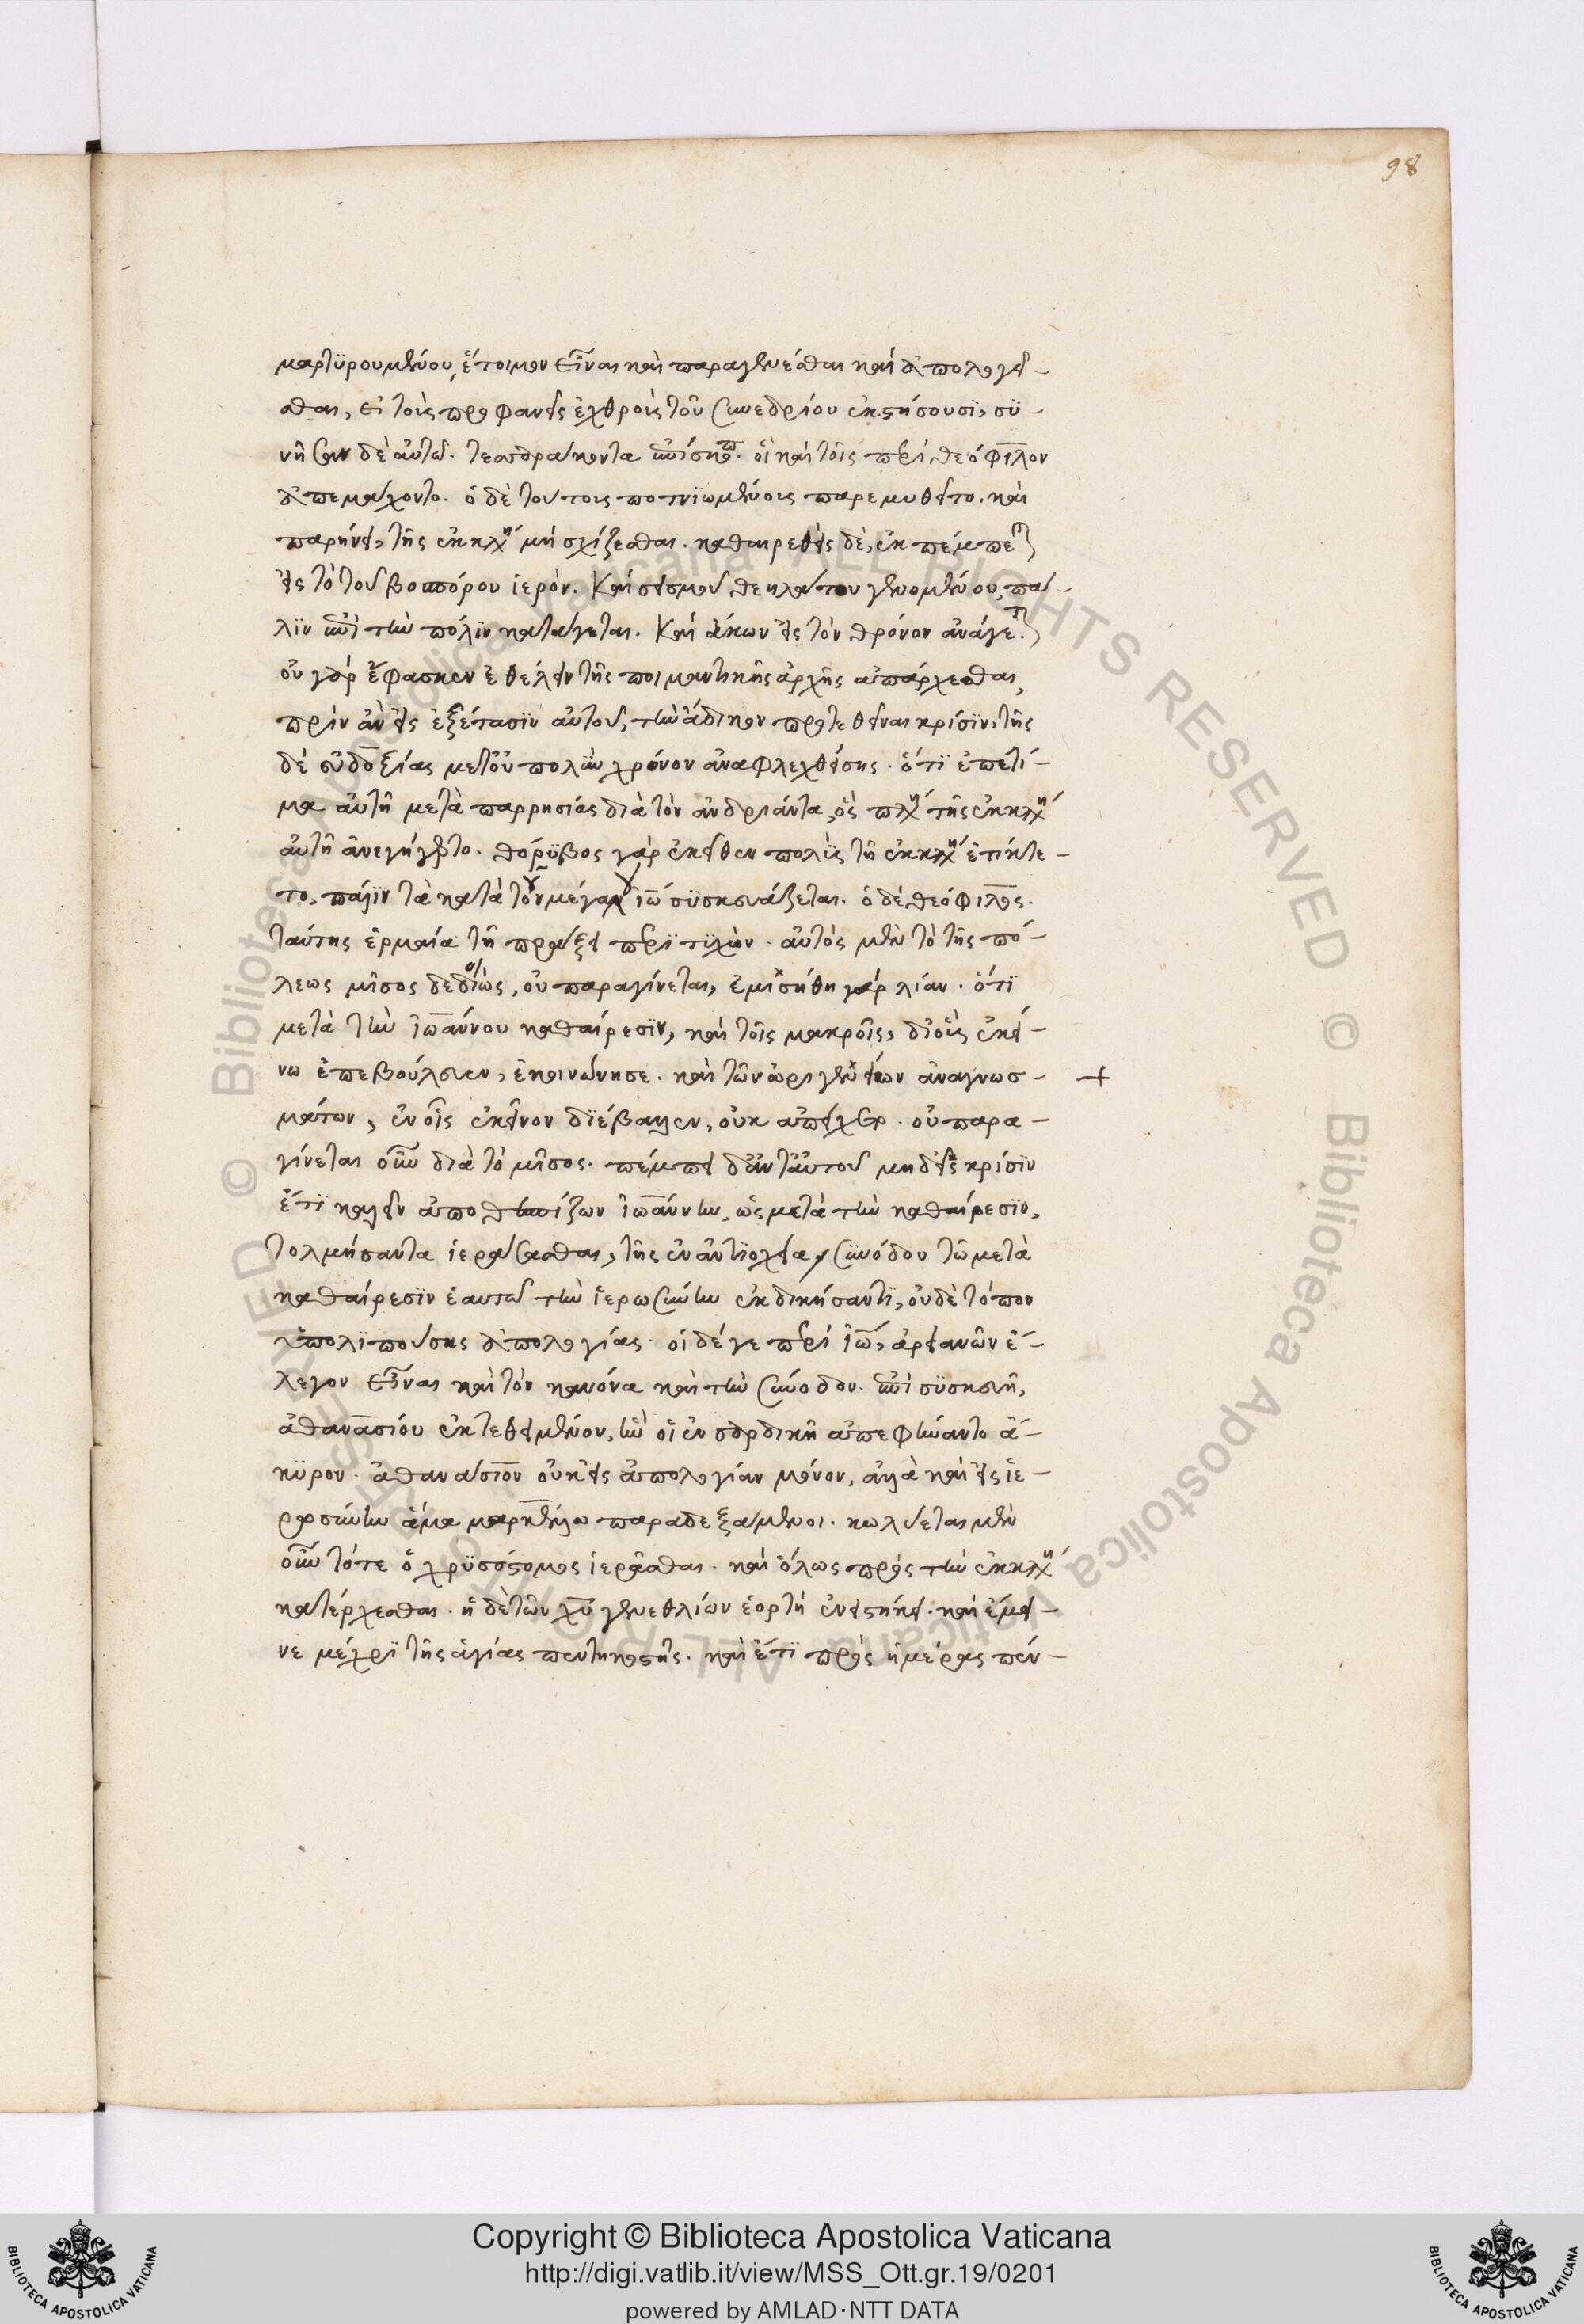 98
μαρτϋρουμένου, ἕτοιμον εἶναι καὶ παραγενέσθαι καὶ ἀπολογεῖ-
σθαι, εἰ τοὺς προφανεῖς ἐχθροὺς τοῦ συνεδρίου ἐκστήσουσϊ, συ-
νῆσαν δὲ αὐτῶ. τεσσαράκοντα ἐπίσκοπ. οἳ καὶ τοῖς περὶ θεόφιλον
ἀπεμάχοντο. ὁ δὲ τούτοις ποτνϊωμένοις παρεμυθεῖτο. καὶ
παρήνει, τῆς ἐκκλη μὴ σχίζεσθαι. καθαιρεθεὶς δὲ, ἐκπέμπετ
εἰς τὸ τοῦ βοσπόρου ἱερόν. Καὶ σεισμοῦ θεηλάτου γενομένου, πά-
λϊν ἐπὶ τὴν πόλϊν κατάγεται. Καὶ ἄκων εἰς τὸν θρόνον ἀνάγετ.
οὐ γὰρ ἔφασκεν ἐθέλειν τῆς ποιμαντικῆς ἀρχῆς ἀπάρχεσθαι,
πρὶν ἂν εἰς ἐξέτασϊν αὐτοῦ, τὴν ἄδικον προτεθεῖναι κρίσϊν. τῆς
δὲ εὐδοξίας μετ οὐ πολὺν χρόνον ἀναφλεχθείσης. ὅτϊ ἐπετί-
μα αὐτῆ μετὰ παρρησίας διὰ τὸν ἀνδριάντα, ὃς πλη τῆς ἐκκλη
αὐτῆ ἀνεγήγερτο. θόρϋβος γὰρ ἐκεῖθεν πολὺς τῆ ἐκκλη ἐτίκτε-
το, πάλϊν τὰ κατὰ τὸν μέγαν ἰω συσκευάζεται. ὁ δὲ θεόφιλος.
ταύτης ἑρμαία τῆ πράξει περϊτϋχὼν. αὐτὸς μὲν τὸ τῆς πό-
λεως μῖσος δεδιὼς, οὐ παραγίνεται, ἐμισήθη γὰρ λίαν. ὅτϊ
μετὰ τὴν ἰωάννου καθαίρεσϊν, καὶ τοῖς μακροῖς, δι οὓς ἐκεί-
νω ἐπεβούλευεν, ἐκοινώνησε. καὶ τῶν ὠριγενείων ἀναγνωσ- +
μάτων, ἐν οἷς ἐκεῖνον διέβαλλεν, οὐκ ἀπείχετο. οὐ παρα-
γίνεται οὖν διὰ τὸ μῖσος. πέμπει δ ἀντ αὐτοῦ μηδ εἰς κρίσϊν
ἔτϊ καλεῖν ἀποθεσπίζων ἰωάννην, ὡς μετὰ τὴν καθαίρεσϊν,
τολμήσαντα ἱερᾶσθαι, τῆς ἐν ἀντϊοχεία συνόδου τῶ μετὰ
καθαίρεσϊν ἑαυτῶ τὴν ἱερωσύνην ἐκδικήσαντϊ, οὐδὲ τόπον
ἀπολϊπούσης ἀπολογίας. οἱ δέ γε περὶ ἰω, ἀρειανῶν ἔ-
λεγον εἶναι καὶ τὸν κανόνα καὶ τὴν σύνοδον. ἐπὶ συσκευῆ,
ἀθανασίου ἐκτεθειμένον, ἣν οἱ ἐν σαρδικῆ ἀπεφήναντο ἄ-
κϋρον. ἀθανάσϊον οὐκ εἰς ἀπολογίαν μόνον, ἀλλὰ καὶ εἰς ἱε-
ρωσύνην ἅμα μαρκέλλω παραδεξάμενοι. κωλύεται μὲν
οὖν τότε ὁ χρϋσόστομος ἱερᾶσθαι. καὶ ὅλως πρὸς τὴν ἐκκλη
κατέρχεσθαι. ἡ δὲ τῶν χυ γενεθλίων ἑορτὴ ἐνειστήκει. καὶ ἔμει-
νε μέχρϊ τῆς ἁγίας πεντηκοστῆς. καὶ ἔτϊ πρὸς ἡμέρας πέν-
Copyright © Biblioteca Apostolica Vaticana
http://digi.vatlib.it/view/MSS_Ott.gr.19/0201
powered by AMLAD·NTT DATA